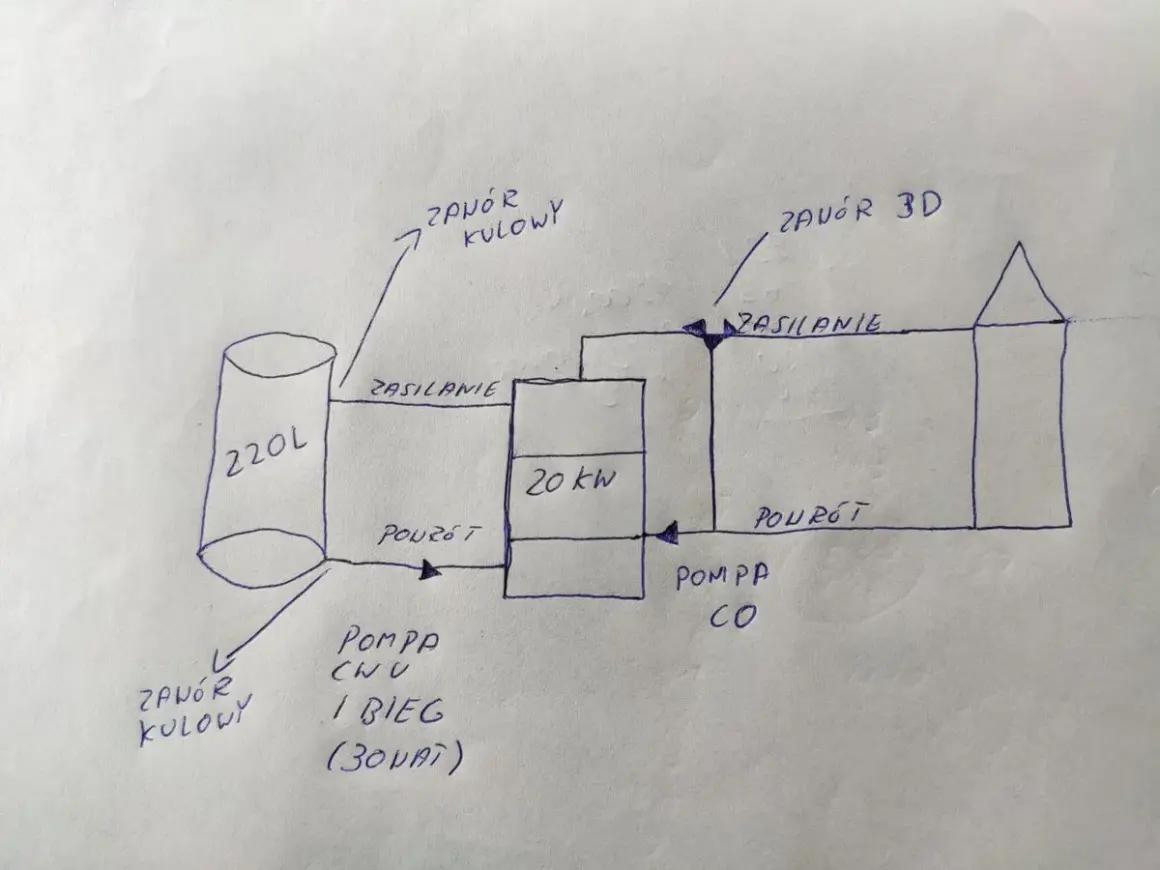 ZAWÓR
KULOWY
ZAWÓR 3D
ZASILANIE
ZASILANIE
220L
20 KW
POWRÓT
POWRÓT
POMPA
CO
POMPA
CWU
1 BIEG
(30WAT)
ZAWÓR
KULOWY